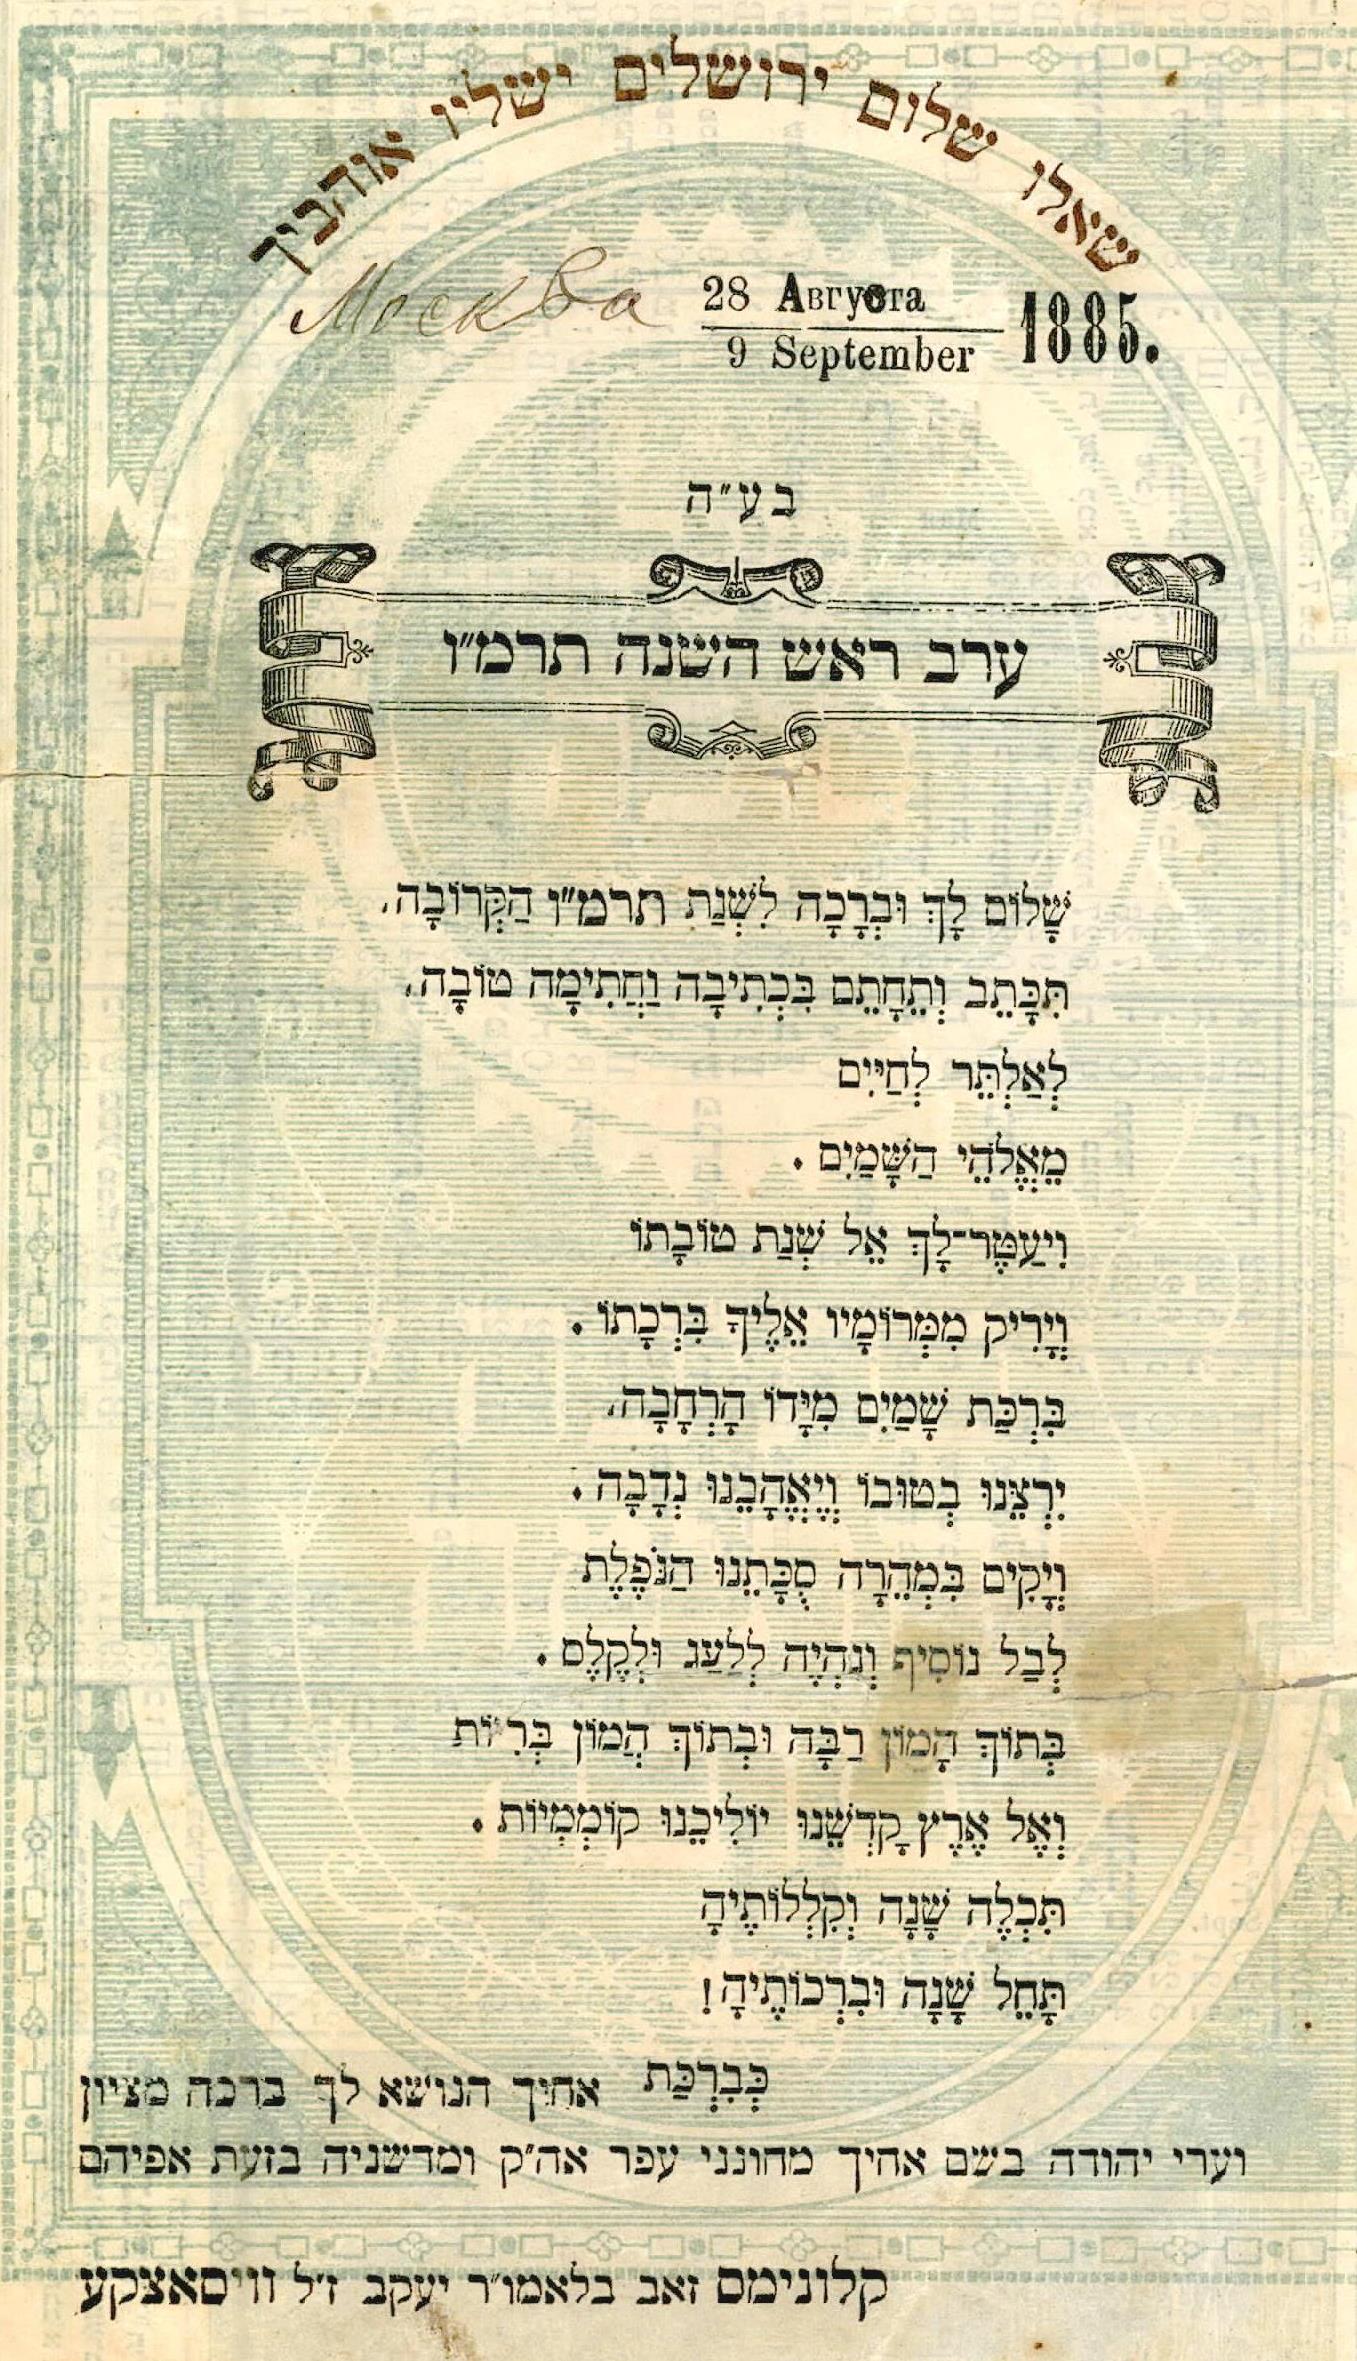 שאלו שלום ירושלים ישליו אוהביך
Москва
28 Августа
9 September
1885.
בע״ה
ערב ראש השנה תרמ״ו
שָׁלוֹם לָךְ וּבְרָכָה לִשְׁנַת תרמ״ו הַקְּרוֹבָה,
תִּכָּתֵב וְתֵחָתֵם בִּכְתִיבָה וַחֲתִימָה טוֹבָה,
לְאַלְתֵּר לְחַיִּים
מֵאֱלֹהֵי הַשָּׁמַיִם.
וִיעַטֶּר־לָךְ אֵל שְׁנַת טוֹבָתוֹ
וְיָרִיק מִמְּרוֹמָיו אֵלֶיךָ בִּרְכָתוֹ.
בִּרְכַּת שָׁמַיִם מִיָּדוֹ הָרְחָבָה,
יִרְצֵנוּ בְטוּבוֹ וְיֶאֱהָבֵנוּ נְדָבָה.
וְיָקִים בִּמְהֵרָה סֻכָּתֵנוּ הַנֹּפֶלֶת
לְבַל נוֹסִיף וְנִהְיֶה לְלַעַג וּלְקֶלֶס.
בְּתוֹךְ הָמוֹן רַבָּה וּבְתוֹךְ הֲמוֹן בְּרִיּוֹת
וְאֶל אֶרֶץ קָדְשֵׁנוּ יוֹלִיכֵנוּ קוֹמְמִיּוֹת.
תִּכְלֶה שָׁנָה וְקִלְלוֹתֶיהָ
תָּחֵל שָׁנָה וּבִרְכוֹתֶיהָ!
כְּבִרְכַּת אחיך הנושא לך ברכה מציון
וערי יהודה בשם אחיך מחונני עפר אה״ק ומדשניה בזעת אפיהם
קלונימס זאב בלאמו״ר יעקב ז״ל וויסאצקע